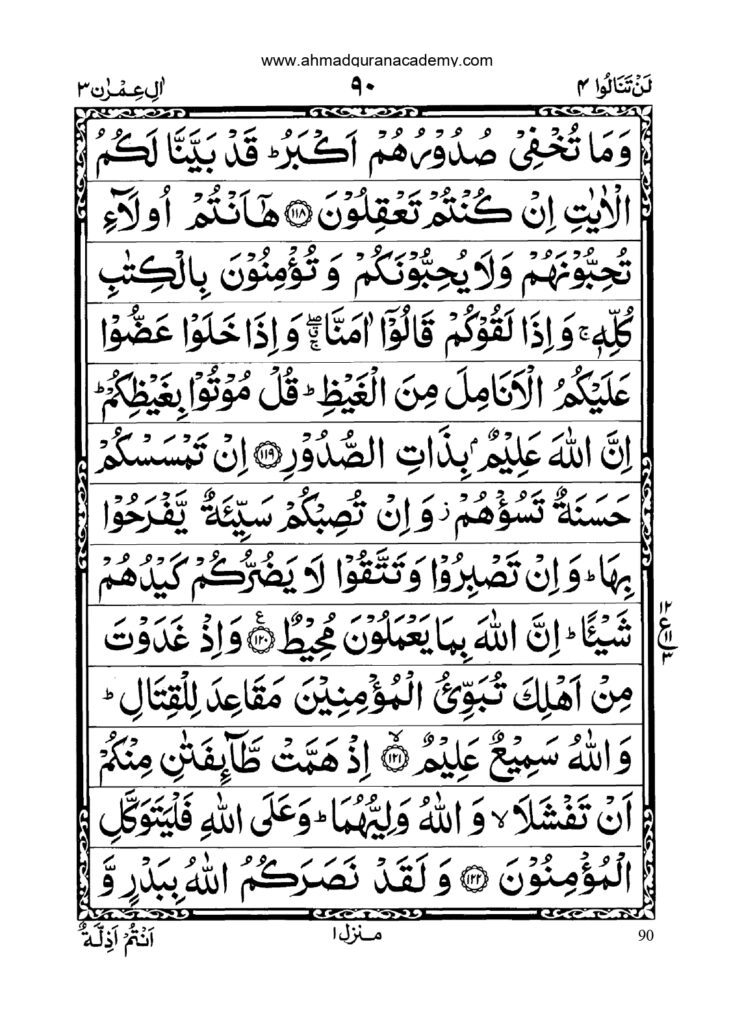 www.ahmadquranacademy.com
لَنْ تَنَالُوا ۴ ۹۰ اٰلِ عِمْرٰن ۳
وَمَا تُخْفِیْ صُدُوْرُهُمْ اَكْبَرُ ؕ قَدْ بَیَّنَّا لَكُمُ
الْاٰیٰتِ اِنْ كُنْتُمْ تَعْقِلُوْنَ ﴿۱۱۸﴾ هٰۤاَنْتُمْ اُولَآءِ
تُحِبُّوْنَهُمْ وَلَا یُحِبُّوْنَكُمْ وَ تُؤْمِنُوْنَ بِالْكِتٰبِ
كُلِّهٖ ۚ وَاِذَا لَقُوْكُمْ قَالُوْۤا اٰمَنَّا ۖۗۚ وَاِذَا خَلَوْا عَضُّوْا
عَلَیْكُمُ الْاَنَامِلَ مِنَ الْغَیْظِ ؕ قُلْ مُوْتُوْا بِغَیْظِكُمْ ؕ
اِنَّ اللّٰهَ عَلِیْمٌۢ بِذَاتِ الصُّدُوْرِ ﴿۱۱۹﴾ اِنْ تَمْسَسْكُمْ
حَسَنَةٌ تَسُؤْهُمْ ؗ وَ اِنْ تُصِبْكُمْ سَیِّئَةٌ یَّفْرَحُوْا
بِهَا ؕ وَ اِنْ تَصْبِرُوْا وَ تَتَّقُوْا لَا یَضُرُّكُمْ كَیْدُهُمْ
شَیْـًٔا ؕ اِنَّ اللّٰهَ بِمَا یَعْمَلُوْنَ مُحِیْطٌ ﴿۱۲۰﴾ ع وَاِذْ غَدَوْتَ
۱۲
ع ۱۱
۳
مِنْ اَهْلِكَ تُبَوِّئُ الْمُؤْمِنِیْنَ مَقَاعِدَ لِلْقِتَالِ ؕ
وَ اللّٰهُ سَمِیْعٌ عَلِیْمٌ ﴿۱۲۱﴾ ۙ اِذْ هَمَّتْ طَّآىِٕفَتٰنِ مِنْكُمْ
اَنْ تَفْشَلَا ۙ وَ اللّٰهُ وَلِیُّهُمَا ؕ وَعَلَی اللّٰهِ فَلْیَتَوَكَّلِ
الْمُؤْمِنُوْنَ ﴿۱۲۲﴾ وَ لَقَدْ نَصَرَكُمُ اللّٰهُ بِبَدْرٍ وَّ
90 منزل ۱ اَنْتُمْ اَذِلَّةٌ